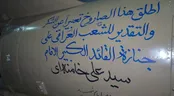 اطلق هذا الصاروخ تعبيراً عن الشكر
والتقدير للشعب العراقي على
جنازة القائد الكبير الامام
سيد علي خامنه‌ای